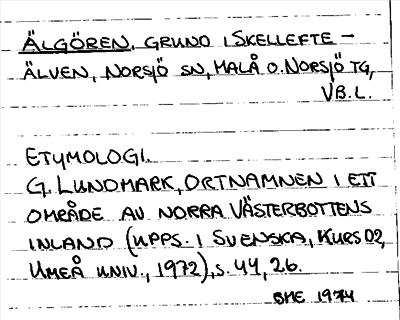 ÄLGÖREN, GRUND I SKELLEFTE-
ÄLVEN, NORSJÖ SN, MALÅ O. NORSJÖ TG,
VB.L.
ETYMOLOGI.
G. LUNDMARK, ORTNAMNEN I ETT
OMRÅDE AV NORRA VÄSTERBOTTENS
INLAND (UPPS. I SVENSKA, KURS D2,
UMEÅ UNIV., 1972), S. 44, 26.
BME 1974